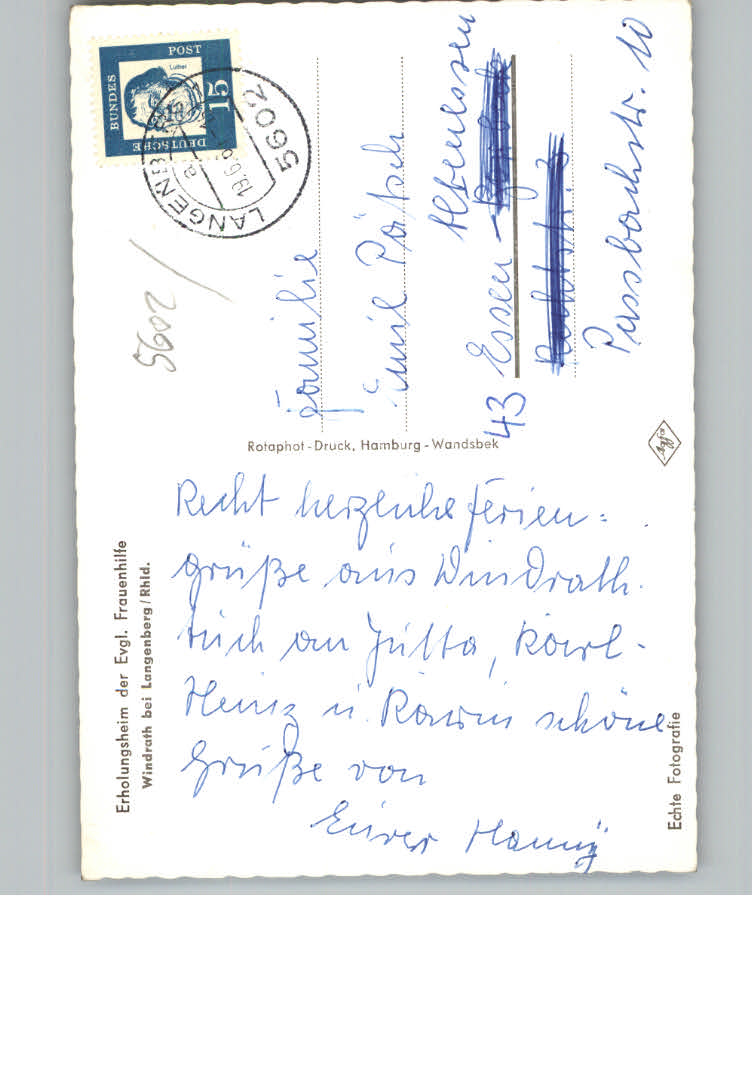 DEUTSCHE
BUNDES
POST
Luther
15
5602
LANGENBERG
19.6
5602
Familie
Emil Pätsch
Altenessen
43 Essen -
Passbachstr. 10
Rotaphot-Druck, Hamburg-Wandsbek
Agfa
Erholungsheim der Evgl. Frauenhilfe
Windrath bei Langenberg/Rhld.
Recht herzliche Ferien=
grüße aus Windrath.
Auch an Jutta, Karl-
Heinz u. Karin schöne
Grüße von
Eurer Hanny
Echte Fotografie